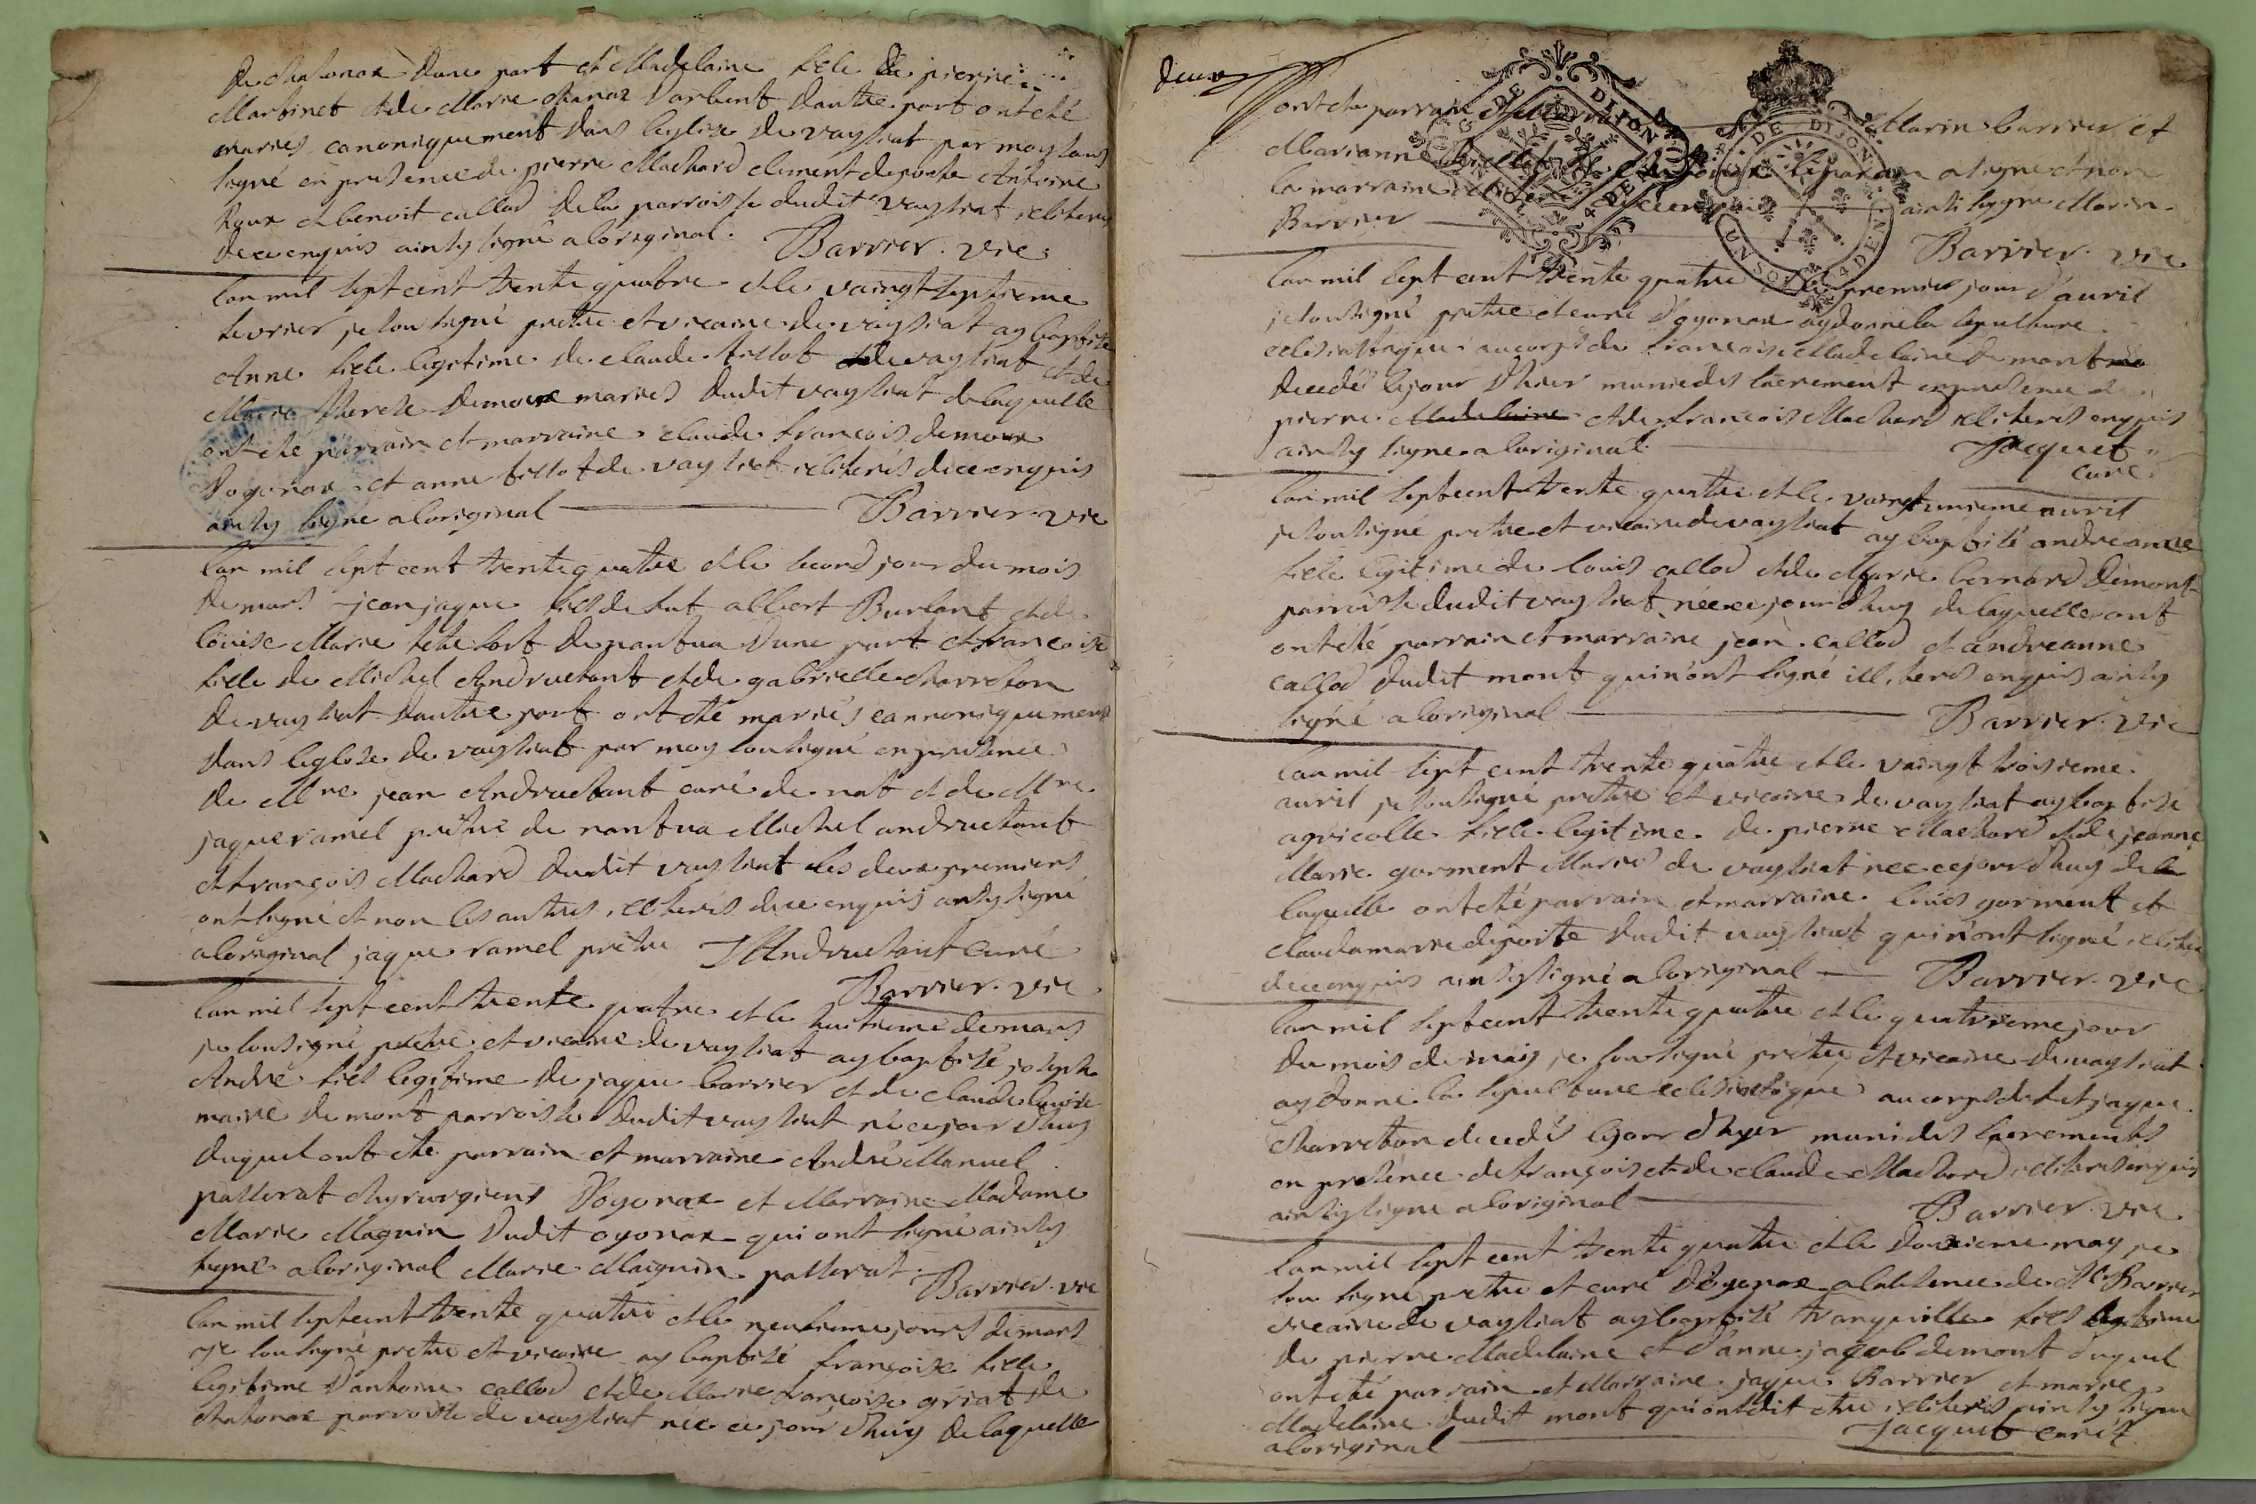 de chatonax d'une part et Madelaine fille de pierre
Martinet et de Marie chanal d'arbent dautre part ont été
mariés canoniquement dans leglise de vaysiat par moy sous
signé en presence de pierre Machard clement deporte Antoine
Roux et benoit callod de la parroisse dudit vaysiat illiterés
de ce enquis ainsy signé a loriginal. Barrier. vic
Lan mil sept cent trente quatre et le vaingt septieme
fevrier je sousigné pretre et vicaire de vaysiat ay baptisé
Anne fille legitime de claude tissot de vaysiat et de
Marie therese demoux mariés dudit vaysiat de laquelle
ont été parrain et marraine claude françois demoux
d'ogonax et anne tissot de vaysiat illiterés de ce enquis
ainsy signe a loriginal Barrier vic
Lan mil sept cent trente quatre et le second jour du mois
de mars jean jaque fils de fut albert Burlant et de
loüise Marie du nantua d'une part et françoise
fille de Michel Andruetant et de gabrielle charreton
de vaysiat dautre part ont été mariés cannoniquement
dans leglise de vaysiat par moy sousigné en presence
de Mre jean Andruetant curé de nat et de Mre
jaque ramel prêtre de nantua Michel andruetant
et françois Machard dudit vaysiat les deux premiers
ont signé et non les autres illiterés de ce enquis ainsy signé
a loriginal jaque ramel pretre J Andruetant curé
Barrier. vic
Lan mil sept cent trente quatre et le huitieme de mars
je sousigné pretre et vicaire de vaysiat ay baptisé joseph
André fils legitime de jaque barrier et de claude louise
maire de mont parroisse dudit vaysiat né ce jour d'huy
duquel ont été parrain et marraine André Manuel
passerat chyrurgiens d'ogonax et Marraine Madame
Marie Maguin dudit ogonax qui ont signé ainsy
signe a loriginal Marie Maignin passerat. Barrier vic
Lan mil sept cent trente quatre et le neufieme jours de mars
je sousigné pretre et vicaire ay baptisé françoise fille
legitime d'antoine callod et de Marie françoise griat de
chatonax parroisse de vaysiat née ce jour d'huy de laquelle
deux
ont été parrain et Marraine Marin barrier et
Marianne parain a signé et non
la marraine ainsi signé Marin
Barrier Barrier. vic
Lan mil sept cent trente quatre et le premier jour d'auril
je sousigné pretre et curé d'ogonax ay donné la sepulture
eclesiastique au corps de françoise Madelaine de mont
decedé le jour d'hier munie des sacrement en presence de
pierre Madelaine et de françois Machard illiteres enquis
ainsy signe a loriginal Jacquet
curé
Lan mil sept cent trente quatre et le vaingt unieme auril
je sousigné pretre et vicaire de vaysiat ay baptisé andreanne
fille legitime de louis callod et de Marie bernard de mont
parroisse dudit vaysiat née ce jour d'huy de laquelle ont
ont été parrain et marraine jean callod et andreanne
callod dudit mont qui n'ont signé illiterés enquis ainsy
signé a loriginal Barrier. vic
Lan mil sept cent trente quatre et le vaingt troisieme
auril je sousigné pretre et vicaire de vaysiat ay baptisé
agricolle fille legitime de pierre Machard et de jeanne
Marie gorment Mariés de vaysiat née ce jour d'huy de la
laquelle ont été parrain et marraine loüis gorment et
claudamarie deporte dudit vaysiat qui n'ont signé illiteré
de ce enquis ainsy signé a loriginal Barrier. vic
Lan mil sept cent trente quatre et le quatrieme jour
du mois de may je sousigné pretre et vicaire de vaysiat
ay donné la sepulture eclesiastique au corps de fut jaque
charreton decedés le jour d'hyer muni des sacrements
en presence de françois et de claude Machard illiterés enquis
ainsy signe a loriginal Barrier. vic
Lan mil sept cent trente quatre et le douxieme may je
sou signe pretre et curé d'ogonax a labsence de Mr Barrier
vicaire de vaysiat ay baptisé tranquille fils legitime
de pierre Madelaine et d'anne jacob de mont duquel
ont été parrain et Marraine jaque Barrier et marie
Madelaine dudit mont qui ont dit etre illiterés ainsy signe
a loriginal Jacquet curé